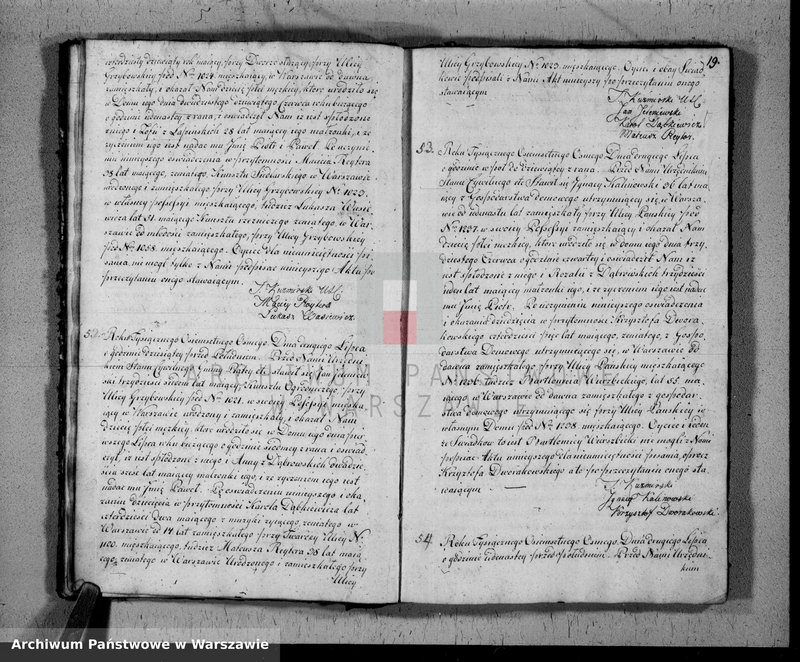 czterdziesty dziewiąty rok maiący, przy Ulicy
Grzybowskiey pod Nº 1024 mieszkaiący, w Warszawie od dawna
zamieszkały, i okazał Nam dziecię płci męzkiey, które urodziło się
w Domu iego dnia dwudziestego dziewiątego Czerwca roku bieżącego
o godzinie z rana, i oświadczył Nam iż iest spłodzone
z niego i Zofii z Łapinskich 28 lat maiącey iego małżonki, i że
życzeniem iego iest nadać mu Imię Piotr i Paweł. Po uczynie-
niu ninieyszego oświadczenia w przytomności Macieia Reytera
38 lat maiącego, żonatego, w Warszawie
urodzonego i zamieszkałego przy Ulicy Grzybowskiey Nº 1023.
w własney possessyi mieszkaiącego, tudzież Łukasza Wasie-
wicza lat 51. maiącego Kunsztu rzeźniczego żonatego, w War-
szawie od młodości zamieszkałego, przy Ulicy Grzybowskiey
pod Nº 1058. mieszkaiącego. Oyciec dla nieumieiętności pi-
sania, nie mógł tylko z Nami podpisać ninieyszego Aktu po
przeczytaniu onego stawaiącym.
J. Kuzmirski
Maciey Reyter
Łukasz Wasiewicz
52. Roku Tysiącznego Osiemsetnego Osmego Dnia drugiego Lipca
o godzinie dziesiątey przed Południem. Przed Nami Urzędni-
kiem Stanu Cywilnego Gminy Piątey etc. stawił się Jan
trzydzieści siedem lat maiący, Kunsztu Ogrodniczego przy
Ulicy Grzybowskiey pod Nº 1021. w swoiey Possessyi mieszka-
iący w Warszawie urodzony i zamieszkały i okazał Nam
dziecię płci męzkiey, które urodziło się w Domu iego dnia pier-
wszego Lipca roku bieżącego o godzinie siódmey z rana i oświad-
czył, iż iest spłodzone z niego i Anny z Dąbrowskich dwadzie-
ścia sześć lat maiącey małżonki iego, i że życzeniem iego iest
nadać mu Imię Paweł. Po oświadczeniu ninieyszego i oka-
zaniu dziecięcia w przytomności Karola Dąbkiewicza lat
czterdzieści dwa maiącego z muzyki żyiącego, żonatego w
Warszawie od 14 lat zamieszkałego przy Twardey Ulicy Nº
1100. mieszkaiącego, tudzież Mateusza Reytera 38 lat maią-
cego, żonatego w Warszawie Urodzonego i zamieszkałego przy
Ulicy
19.
Ulicy Grzybowskiey Nº 1023. mieszkaiącego. Oyciec i obay Świad-
kowie podpisali z Nami Akt ninieyszy po przeczytaniu onego
stawaiącym
J. Kuzmirski
Jan
Karol Dąbkiewicz
Mateusz Reyter.
53. Roku Tysiącznego Osiemsetnego Osmego Dnia drugiego Lipca
o godzinie w pół do dziewiątey z rana. Przed Nami Urzędnikiem
Stanu Cywilnego etc. Stawił się Ignacy Kalinowski 36 lat ma-
iący z Gospodarstwa domowego utrzymuiący się, w Warsza-
wie od iedenastu lat zamieszkały przy Ulicy Pańskiey pod
Nº 1237. w swoiey Possessyi mieszkaiący i okazał Nam
dziecię płci męzkiey, które urodziło się w domu iego dnia trzy-
dziestego Czerwca o godzinie czwartey i oświadczył Nam iż
iest spłodzone z niego i Rozalii z Dąbrowskich trzydzieści
ieden lat maiącey małżonki iego, i że życzeniem iego iest nadać
mu Imię Piotr. Po uczynieniu ninieyszego oświadczenia
i okazaniu dziecięcia w przytomności Krzysztofa Dwora-
kowskiego czterdzieści pięć lat maiącego, żonatego z Gospo-
darstwa Domowego utrzymuiącego się, w Warszawie od
dawna zamieszkałego przy Ulicy Pańskiey mieszkaiącego
Nº 1206. tudzież Bartłomieia Wierbickiego, lat 55. ma-
iącego, w Warszawie od dawna zamieszkałego z gospodar-
stwa domowego utrzymuiącego się przy Ulicy Pańskiey w
własnym Domu pod Nº 1038. mieszkaiącego. Oyciec i ieden
ze Świadków to iest Bartłomiey nie mogli z Nami
podpisać Aktu ninieyszego dla nieumieiętności pisania, oprócz
Krzysztofa Dworakowskiego a to po przeczytaniu onego sta-
waiącym.
J. Kuzmirski
Ignacy Kalinowski
Krzysztof Dworakowski.
54. Roku Tysiącznego Osiemsetnego Osmego Dnia drugiego Lipca
o godzinie iedenastey przed Południem. Przed Nami Urzędni-
kiem
ARCHIWUM PAŃSTWOWE
W WARSZAWIE
Archiwum Państwowe w Warszawie